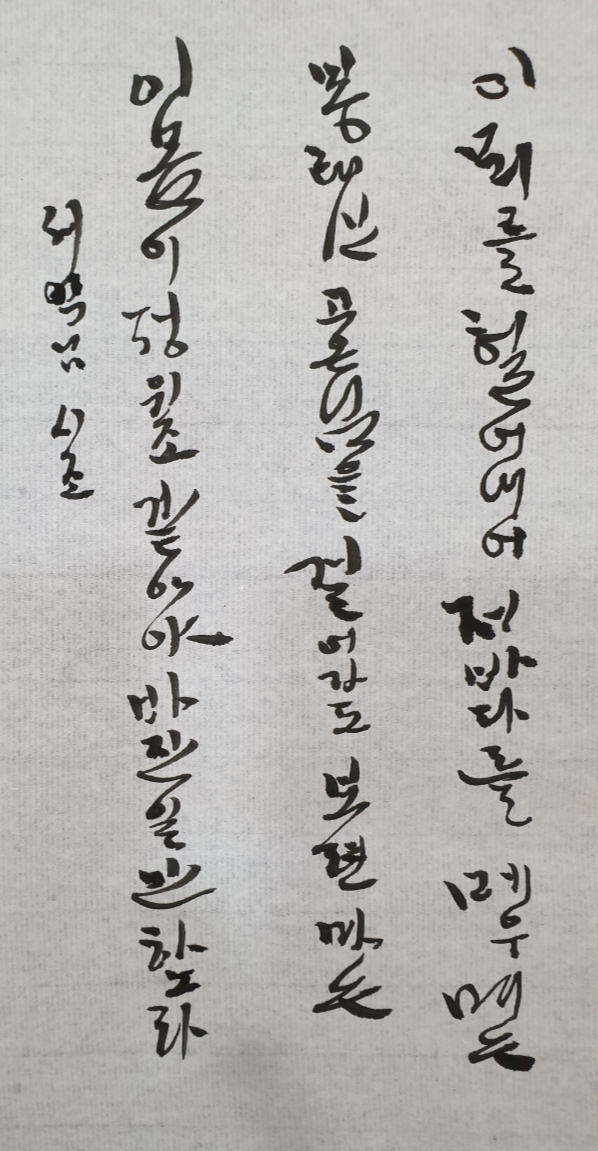 이 뫼를 헐어내어 저 바다를 메우며는
봉래산 고은님을 걸어가도 보련마는
이몸이 정위조 같아야 바잔일만 하노라
시조